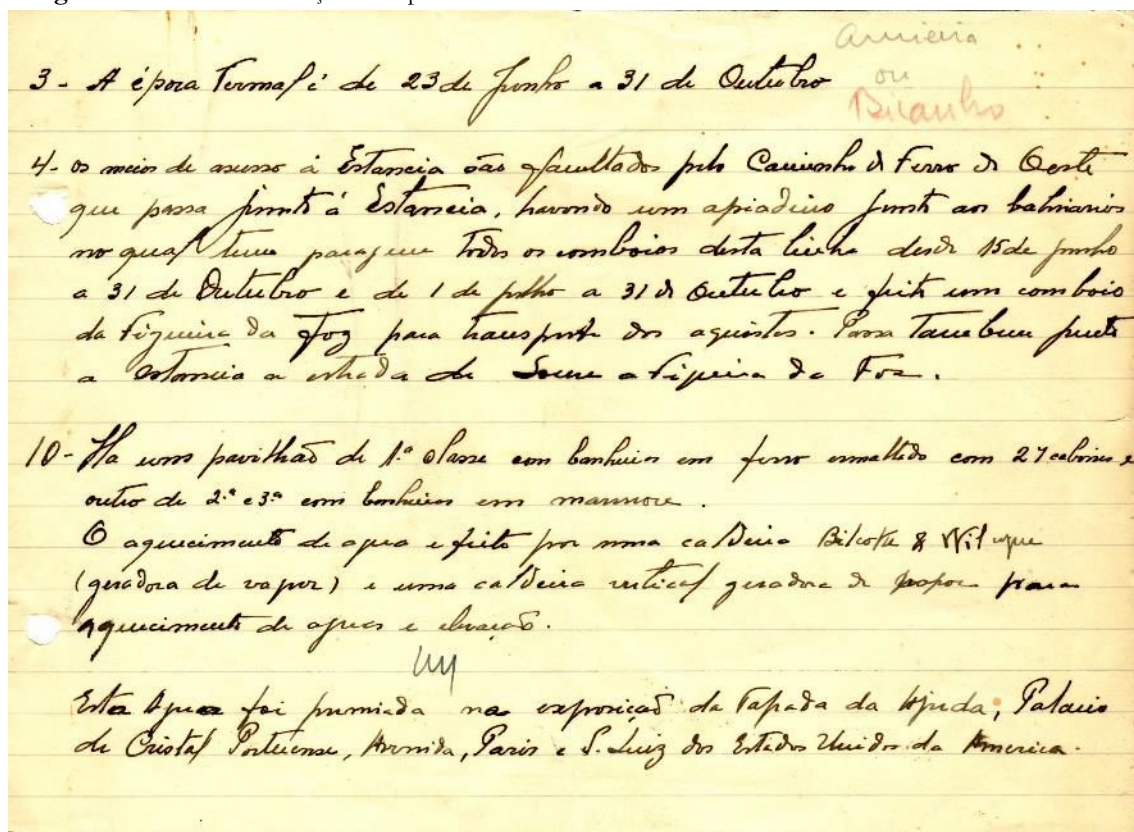 Amieira
ou
Bicanho
3 - A época Termal é de 23 de Junho a 31 de Outubro
4 - Os meios de acesso á Estancia são facultados pelo Caminho de Ferro do Oeste
que passa junto á Estancia, havendo um apiadeiro junto aos balniarios
no qual teem paragem todos os comboios desta linha desde 15 de Junho
a 31 de Outubro e de 1 de Julho a 31 de Outubro e feito um comboio
da Figueira da Foz para transporte dos aquistas. Passa tambem junto
a estancia a estrada de Soure a Figueira da Foz.
10 - Ha um pavilhaõ de 1.ª classe com banheiras em ferro esmaltado com 27 cabines e
outro de 2.ª e 3.ª com banheiras em marmore.
O aquecimento de agua e feito por uma caldeira
(geradora de vapor) e uma caldeira vertical geradora de vapor para
aquecimento de aguas e elevação.
Esta Agua foi premiada na exposiçaõ da Tapada da Ajuda, Palacio
de Cristal Portuense, Avenida, Paris e S. Luiz dos Estados Unidos da America.